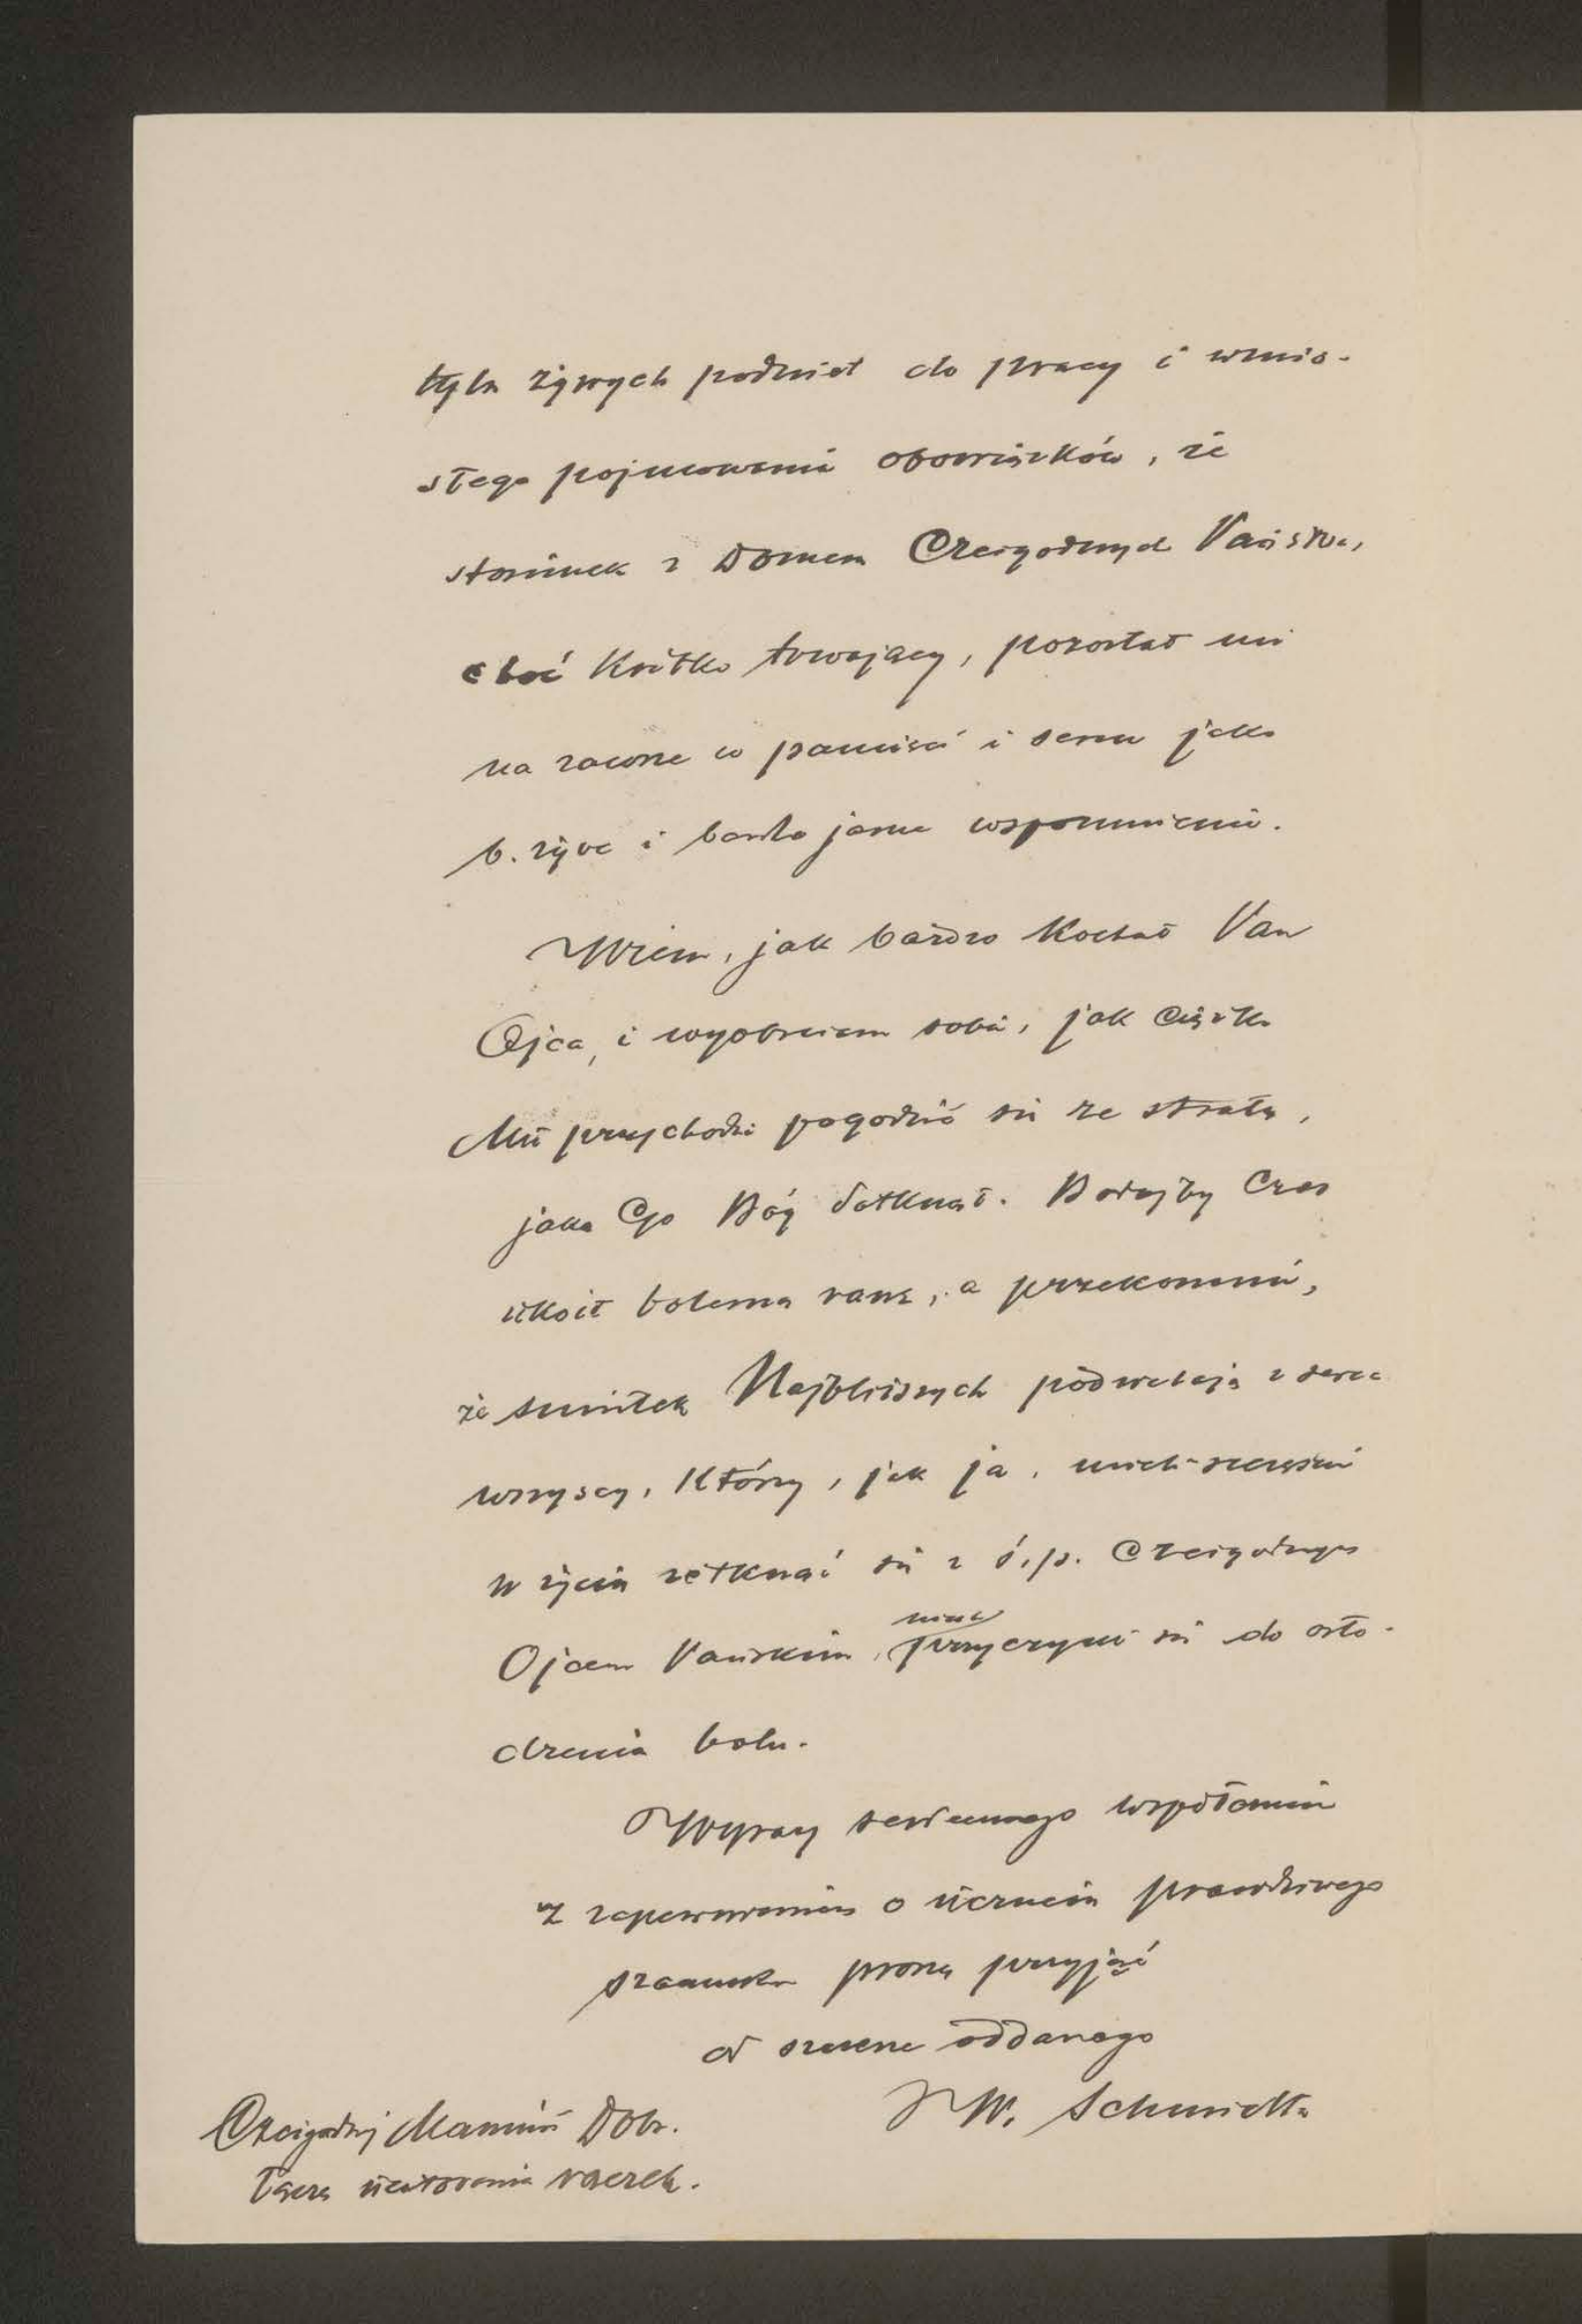 tylu żywych podniet do pracy i wznio-
słego pojmowania obowiązków, że
stosunek z Domem Czcigodnych Państwa,
choć krótko trwający, pozostał mi
na zawsze w pamięci i sercu jako
b. żywe i bardzo jasne wspomnienie.
Wiem, jak bardzo kochał Pan
Ojca, i wyobrażam sobie, jak ciężko
Mu przychodzi pogodzić się ze stratą,
jaką Go Bóg dotknął. Bodajby czas
ukoił bolesną ranę, a przekonanie,
że smutek Najbliższych podzielają z serca
wszyscy, którzy, jak ja, mieli szczęście
w życiu zetknąć się z ś.p. Czcigodnym
Ojcem Pańskim, przyczyni się do osło-
dzenia bólu.
Wyrazy serdecznego współczucia
z zapewnieniem o uczuciu prawdziwego
szacunku proszę przyjąć
od szczerze oddanego
W. Schmidta
Czcigodnej Mamusi Dobr.
łączę ucałowania rączek.